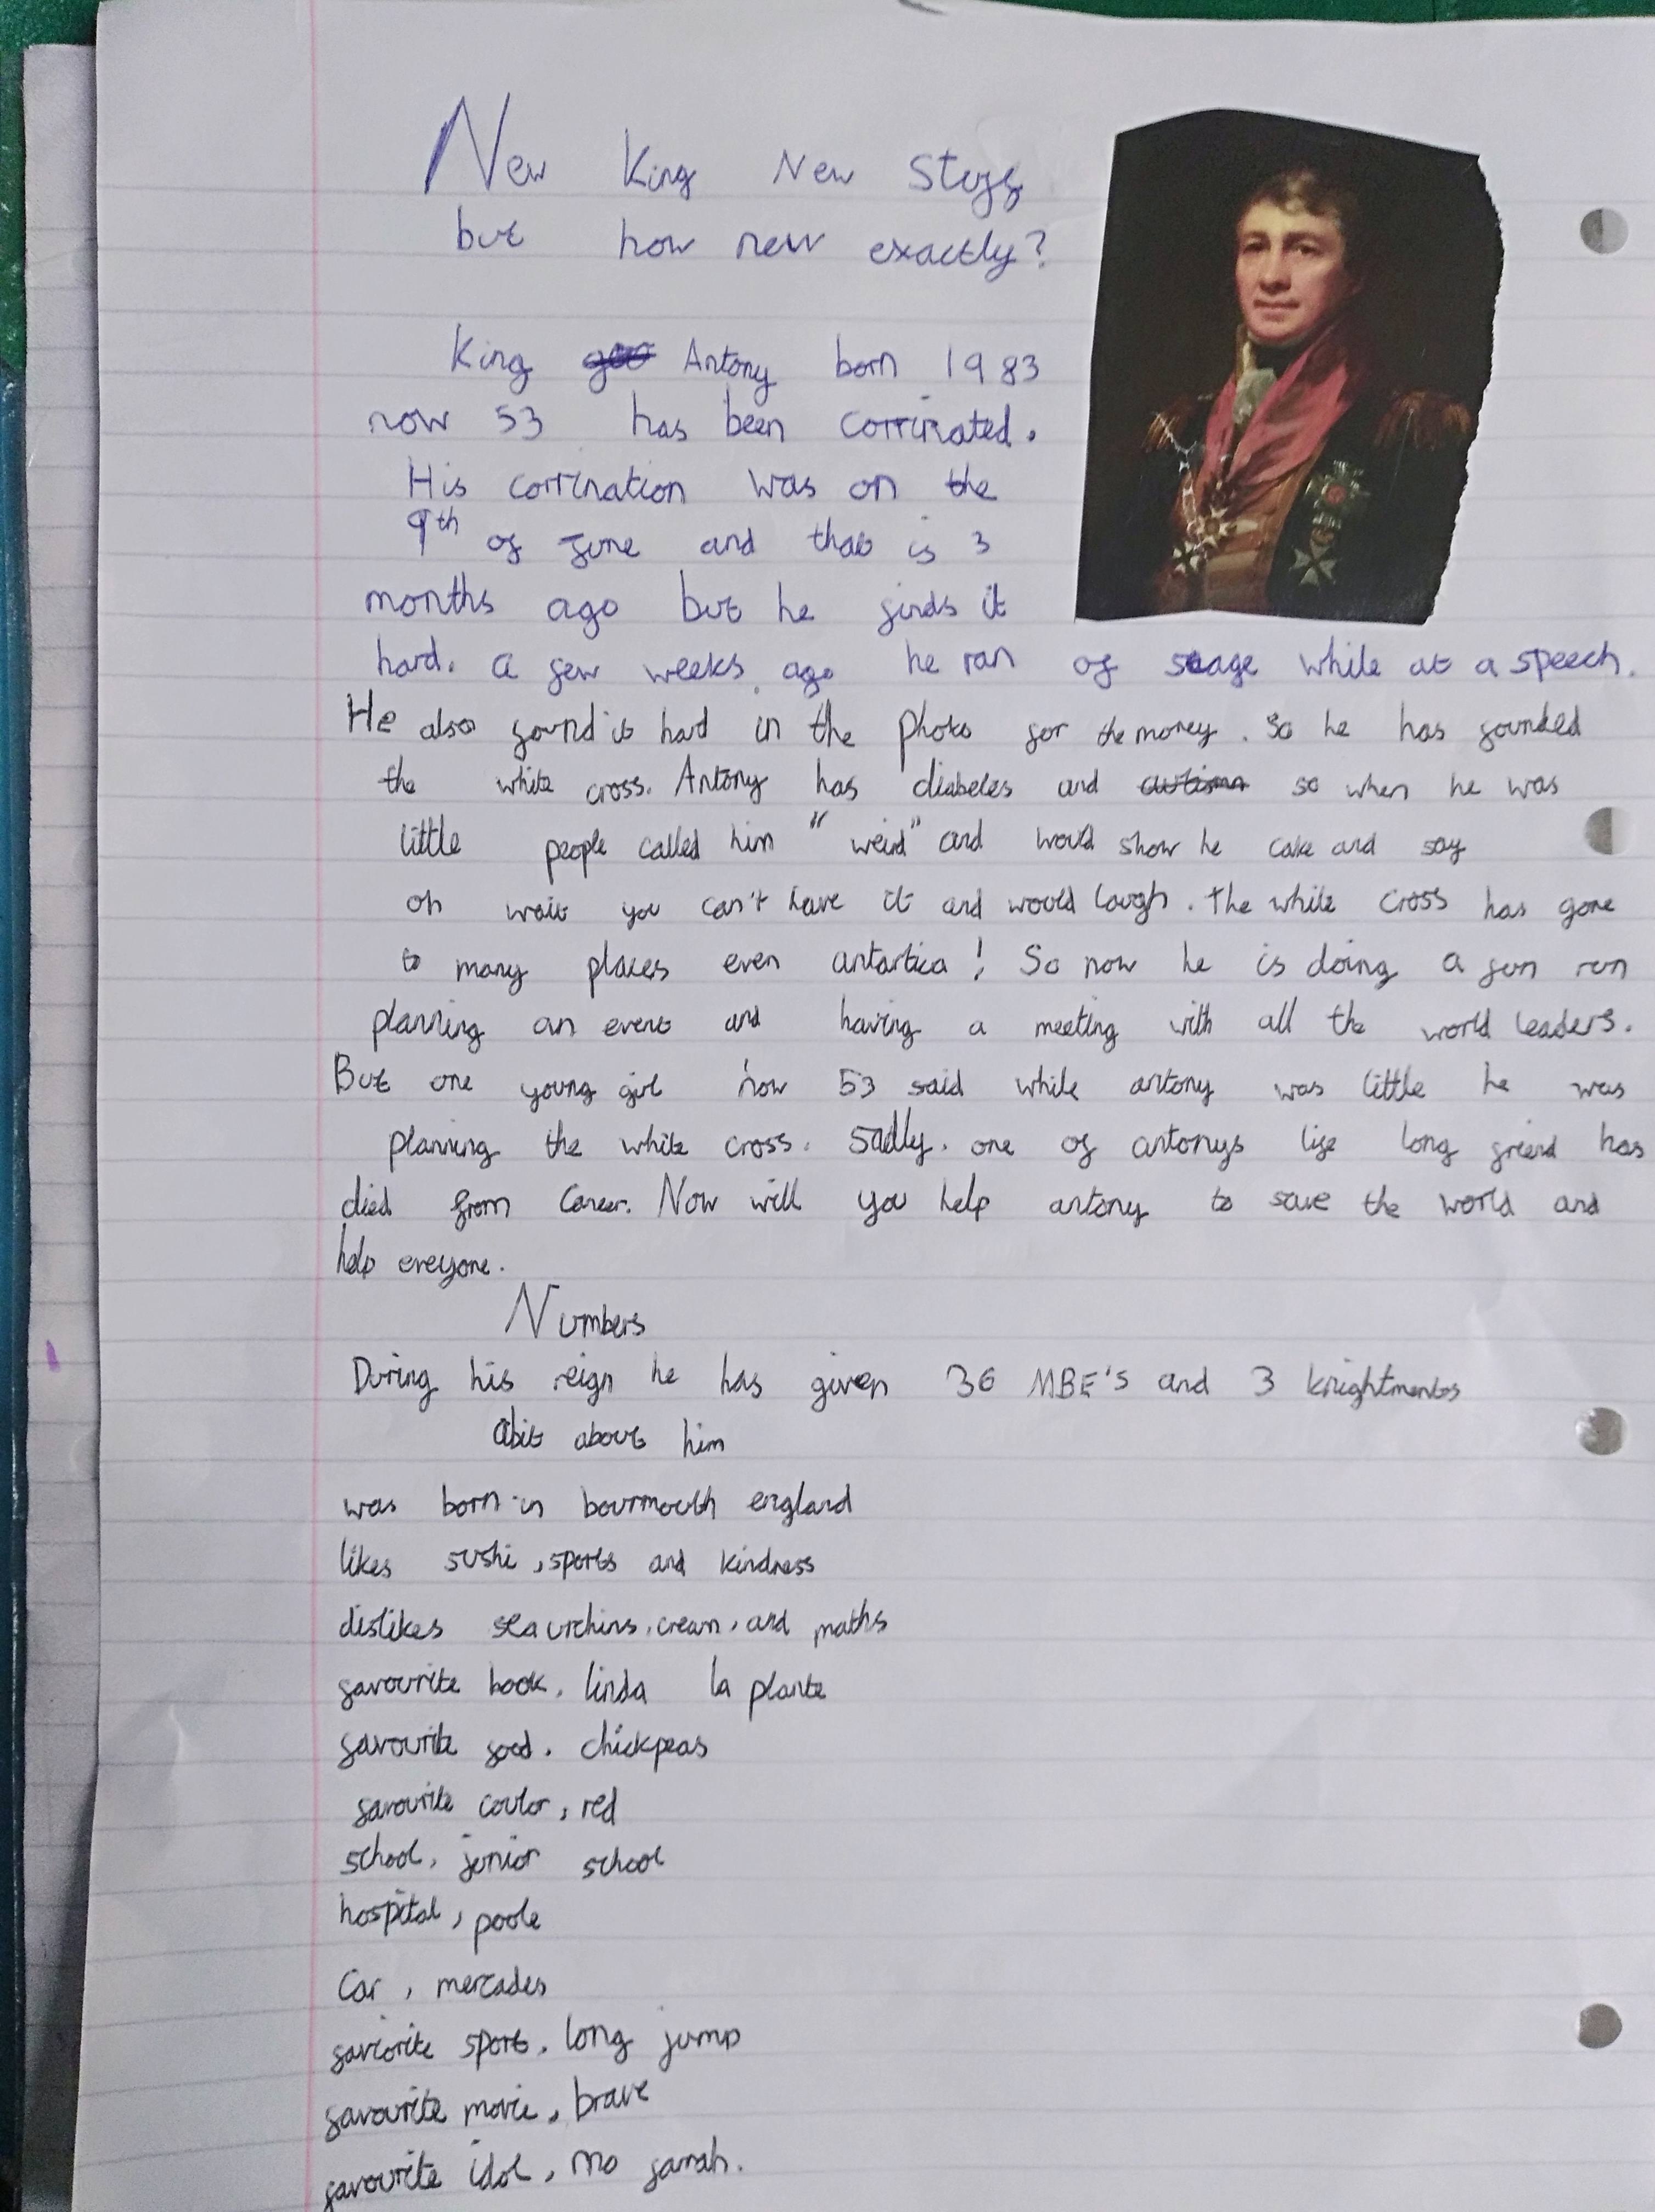 New King New Steps
but how new exactly?
King Antony born 1983
now 53 has been corrinated.
His corrination was on the
9th of June and that is 3
months ago but he finds it
hard. a few weeks ago he ran of stage while at a speech.
He also found it hard in the photo for the money. So he has founded
the white cross. Antony has diabetes and autism so when he was
little people called him "weird" and would show he cake and say
oh wait you can't have it and would laugh. the white cross has gone
to many places even antartica! So now he is doing a fun run
planning an event and having a meeting with all the world leaders.
But one young girl now 53 said while antony was little he was
planning the white cross. Sadly. one of antonys life long freind has
died from Cancer. Now will you help antony to save the world and
help everyone.
Numbers
During his reign he has given 36 MBE's and 3 knightments
A bit about him
was born in bournmouth england
likes sushi, sports and kindness
dislikes sea urchins, cream, and maths
favourite book, linda la plante
favourite food. chickpeas
favourite coulor, red
school, junior school
hospital, poole
Car, mercades
faviorite sport, long jump
favourite movie, brave
favourite idol, mo farrah.